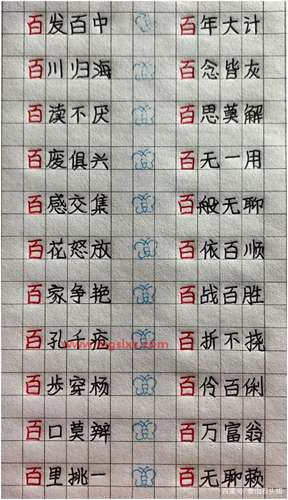 百发百中 百年大计
百川归海 百念皆灰
百渎不厌 百思莫解
百废俱兴 百无一用
百感交集 百般无聊
百花怒放 百依百顺
百家争艳 百战百胜
百孔千疮 百折不挠
百步穿杨 百伶百俐
百口莫辩 百万富翁
百里挑一 百无聊赖